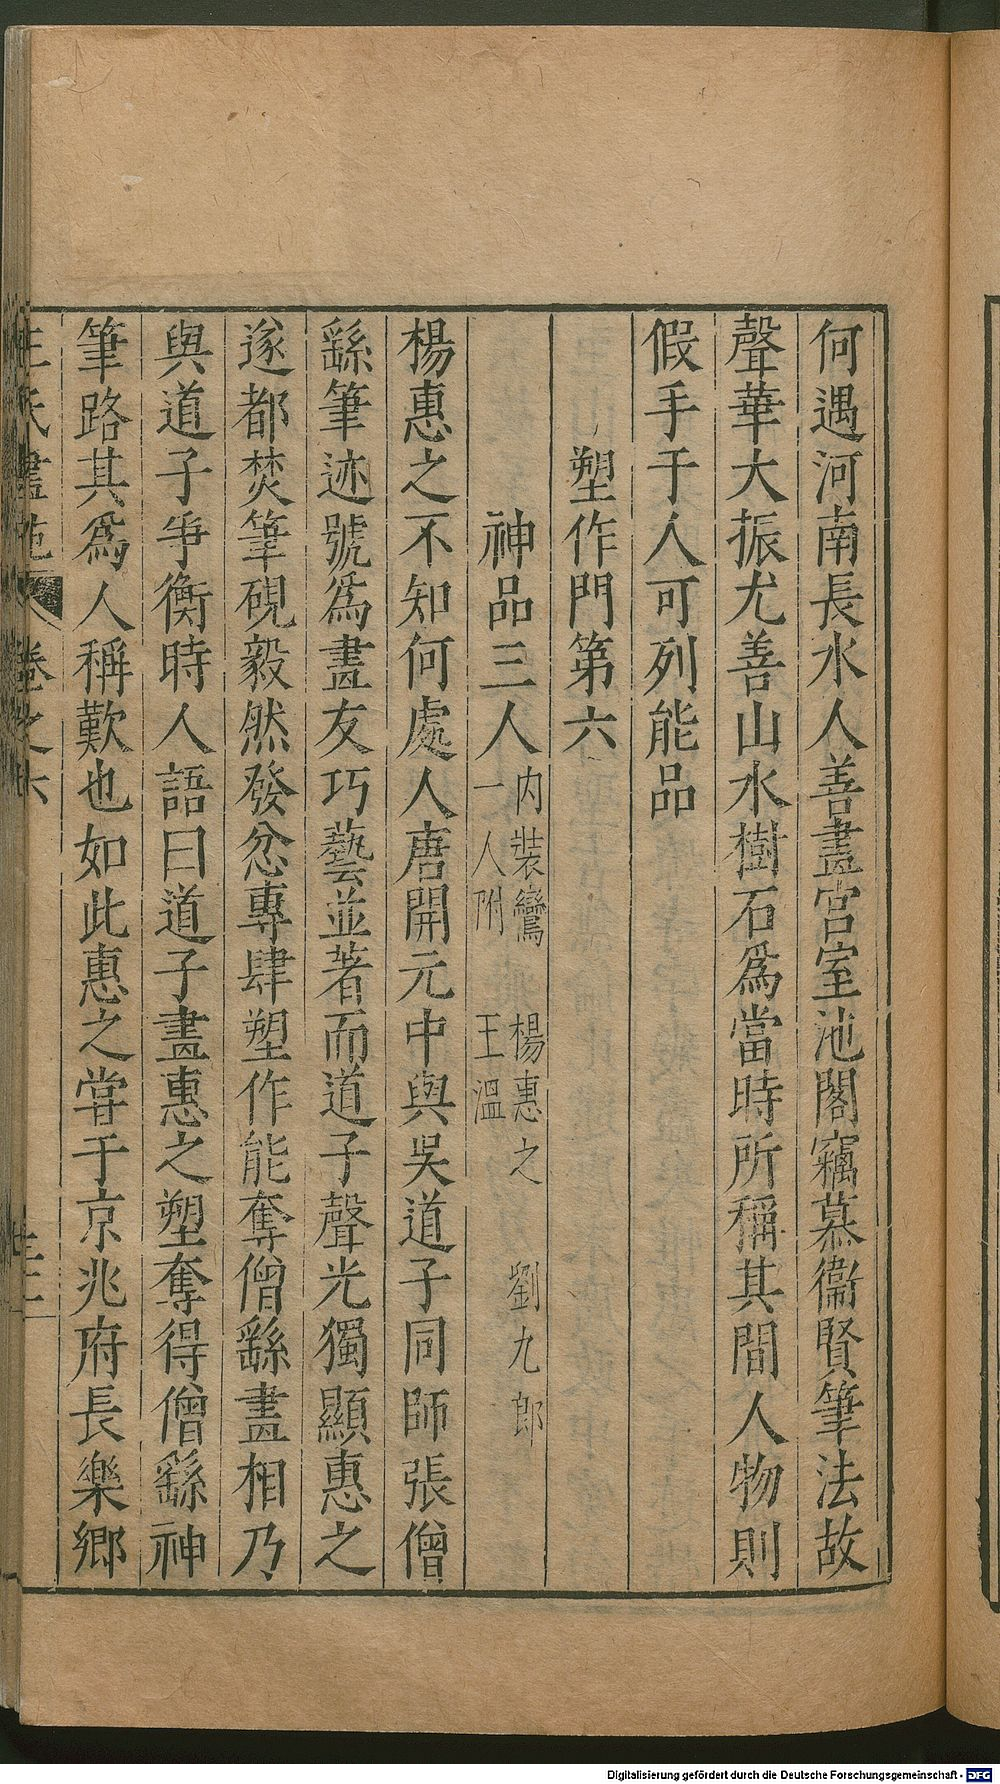 何遇河南長水人善畫宮室池閣竊慕衞賢筆法故
聲華大振尤善山水樹石爲當時所稱其間人物則
假手于人可列能品
塑作門第六
神品三人 內裝鑾一人附 楊惠之 王溫 劉九郎
楊惠之不知何處人唐開元中與吳道子同師張僧
繇筆迹號爲畫友巧藝並著而道子聲光獨顯惠之
遂都焚筆硯毅然發忿專肆塑作能奪僧繇畫相乃
與道子爭衡時人語曰道子畫惠之塑奪得僧繇神
筆路其爲人稱歎也如此惠之嘗于京兆府長樂鄉
王氏畫苑 卷之六
Digitalisierung gefördert durch die Deutsche Forschungsgemeinschaft - DFG